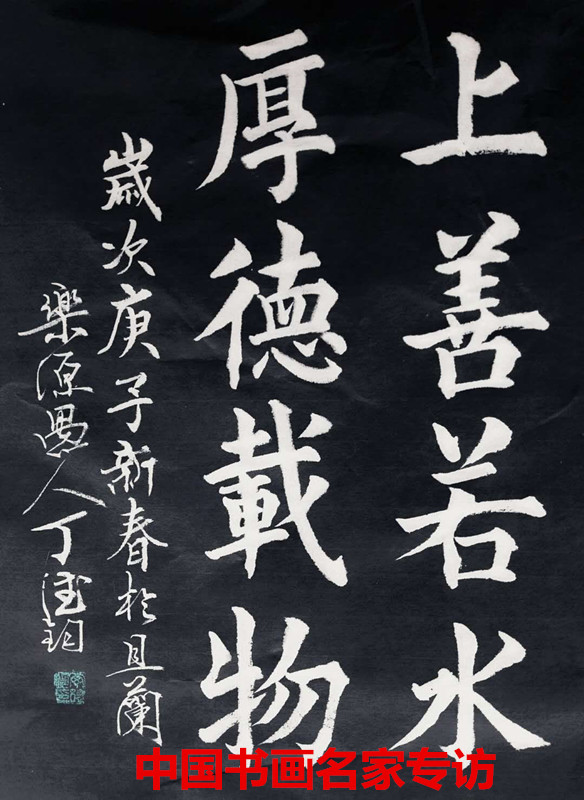 上善若水
厚德載物
歲次庚子新春於且蘭
樂源愚人丁德珣
中国书画名家专访